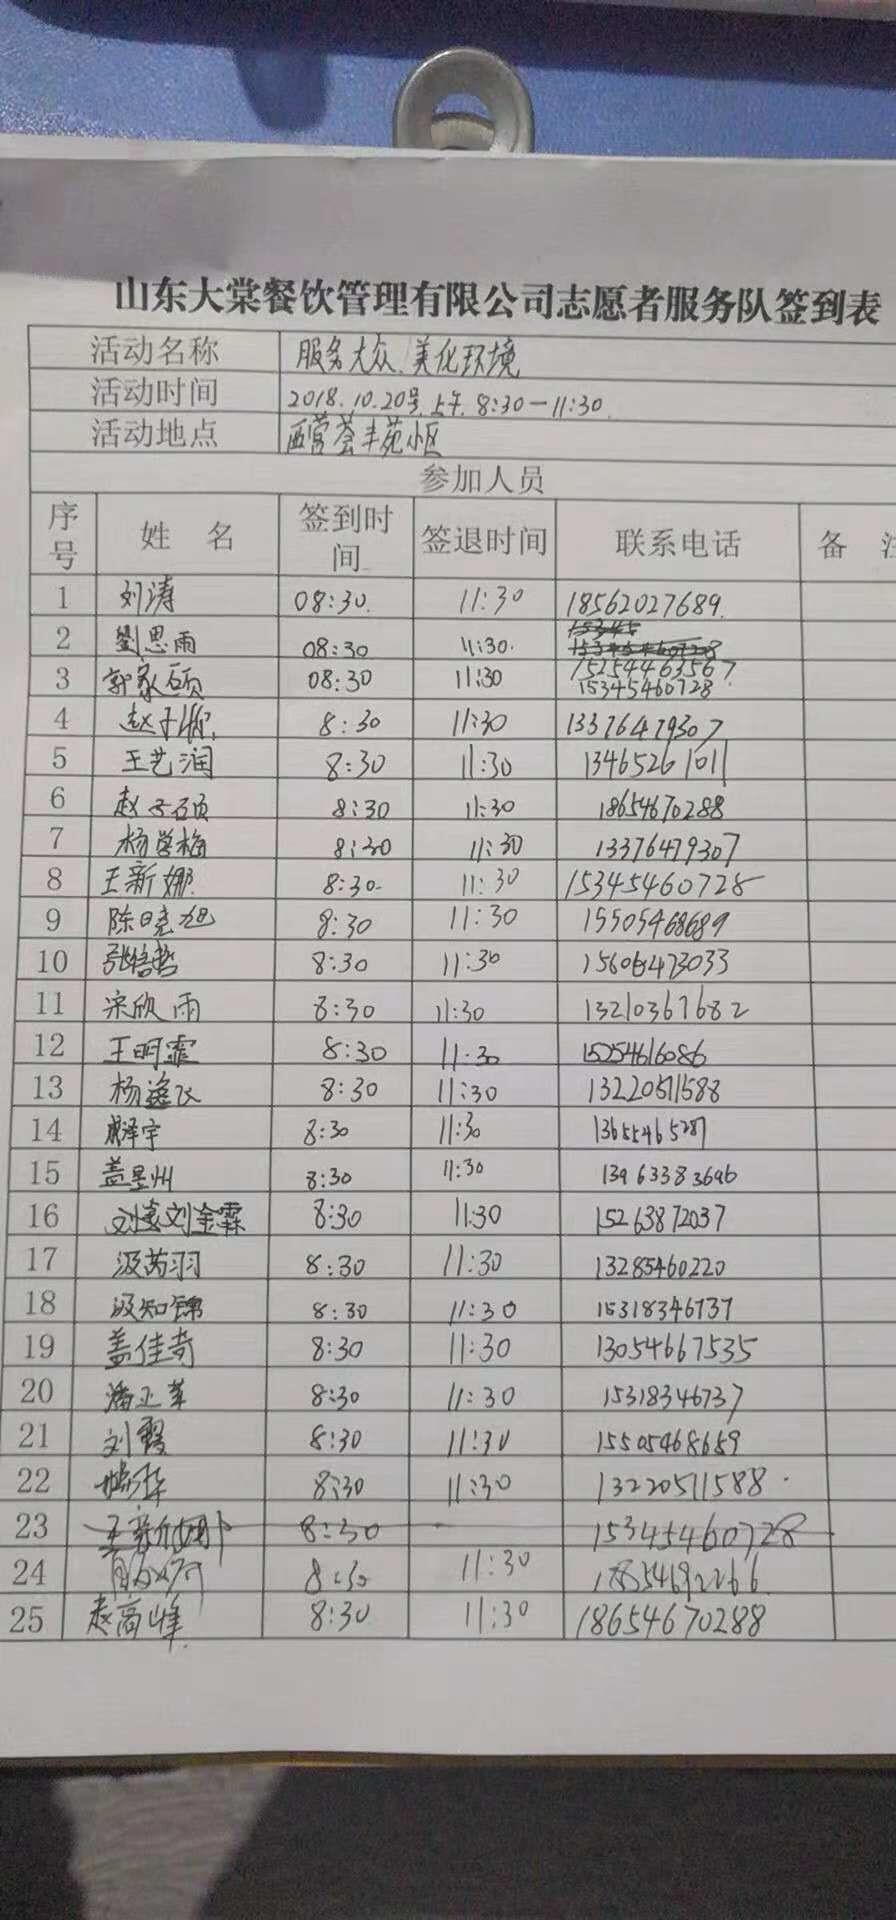 山东大棠餐饮管理有限公司志愿者服务队签到表
活动名称 服务大众、美化环境
活动时间 2018.10.20号.上午.8:30—11:30
活动地点 西营荟丰苑小区
参加人员
序号 姓 名 签到时间 签退时间 联系电话 备 注
1 刘涛 08:30. 11:30 18562027689.
2 劉思雨 08:30 11:30. 15254463567
3 郭家硕 08:30 11:30 15345460728
4 赵子 8:30 11:30 13376479307
5 王艺润 8:30 11:30 13465261011
6 赵子硕 8:30 11:30 18654670288
7 杨学梅 8:30 11:30 13376479307
8 王新娜 8:30. 11:30 15345460728
9 陈晓旭 8:30 11:30 15505468689
10 张哲 8:30 11:30
11 宋欣雨 8:30 11:30 13210367682
12 王明霏 8:30 11:30 15254616086
13 杨逸飞 8:30 11:30 13220511588
14 成泽宇 8:30 11:30 13655465287
15 盖昱州 8:30 11:30 13963383696
16 刘金霖 8:30 11:30 15263872037
17 汲芮羽 8:30 11:30 13285460220
18 汲知锦 8:30 11:30 15318346737
19 盖佳奇 8:30 11:30 13054667535
20 潘正苹 8:30 11:30 15318346737
21 刘霞 8:30 11:30 15505468659
22 8:30 11:30 13220511588
23 王新娜 8:30 15345460728
24 8:30 11:30
25 赵高峰 8:30 11:30 18654670288